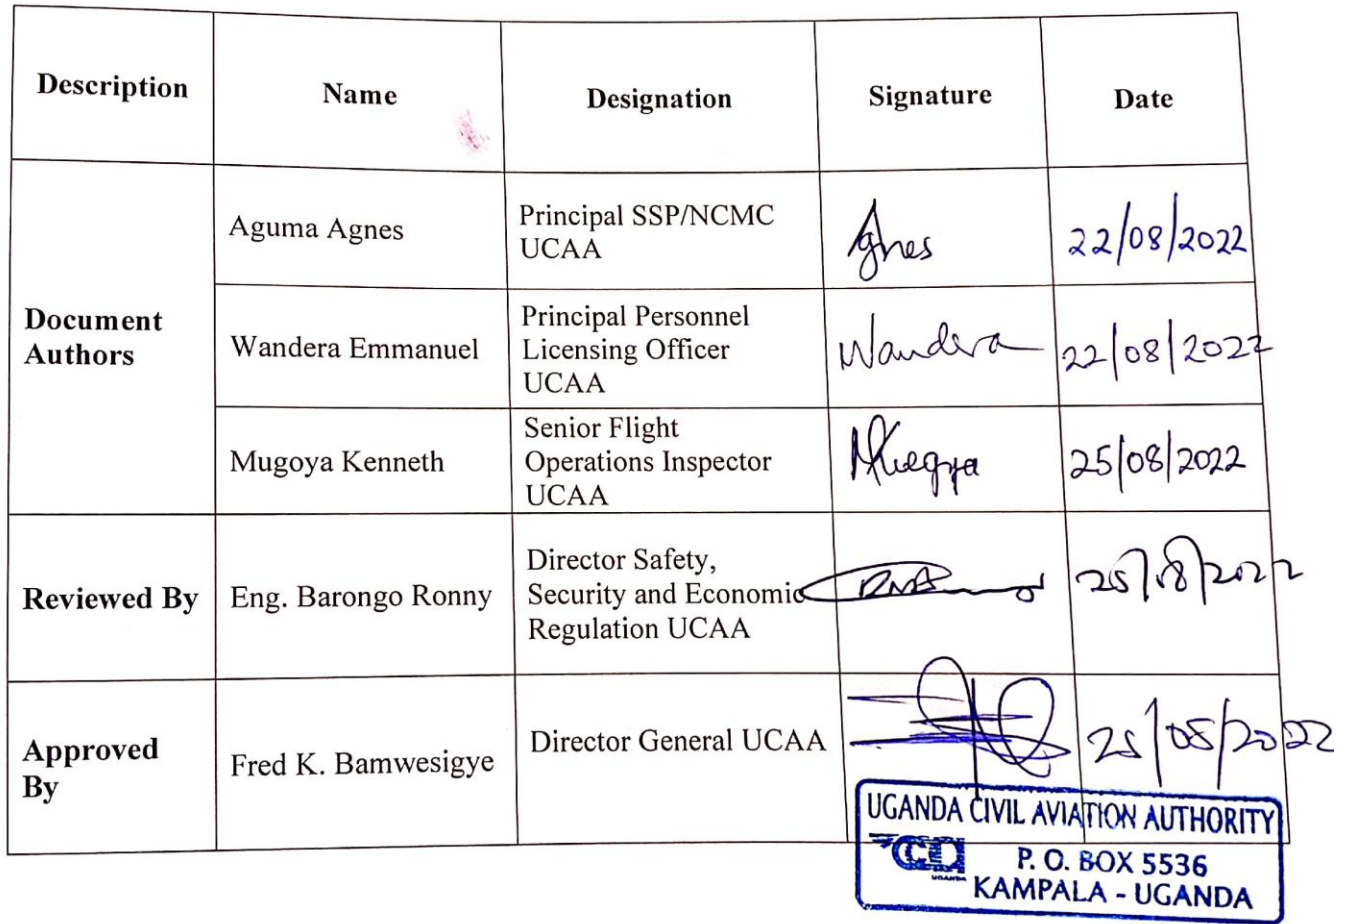 Description Name Designation Signature Date
Aguma Agnes
Principal SSP/NCMC
UCAA
Agnes
22/08/2022
Document
Authors
Wandera Emmanuel
Principal Personnel
Licensing Officer
UCAA
Wandera
22/08/2022
Mugoya Kenneth
Senior Flight
Operations Inspector
UCAA
25/08/2022
Reviewed By
Eng. Barongo Ronny
Director Safety,
Security and Economic
Regulation UCAA
25/08/2022
Approved
By
Fred K. Bamwesigye
Director General UCAA
25/05/2022
UGANDA CIVIL AVIATION AUTHORITY
P. O. BOX 5536
KAMPALA - UGANDA